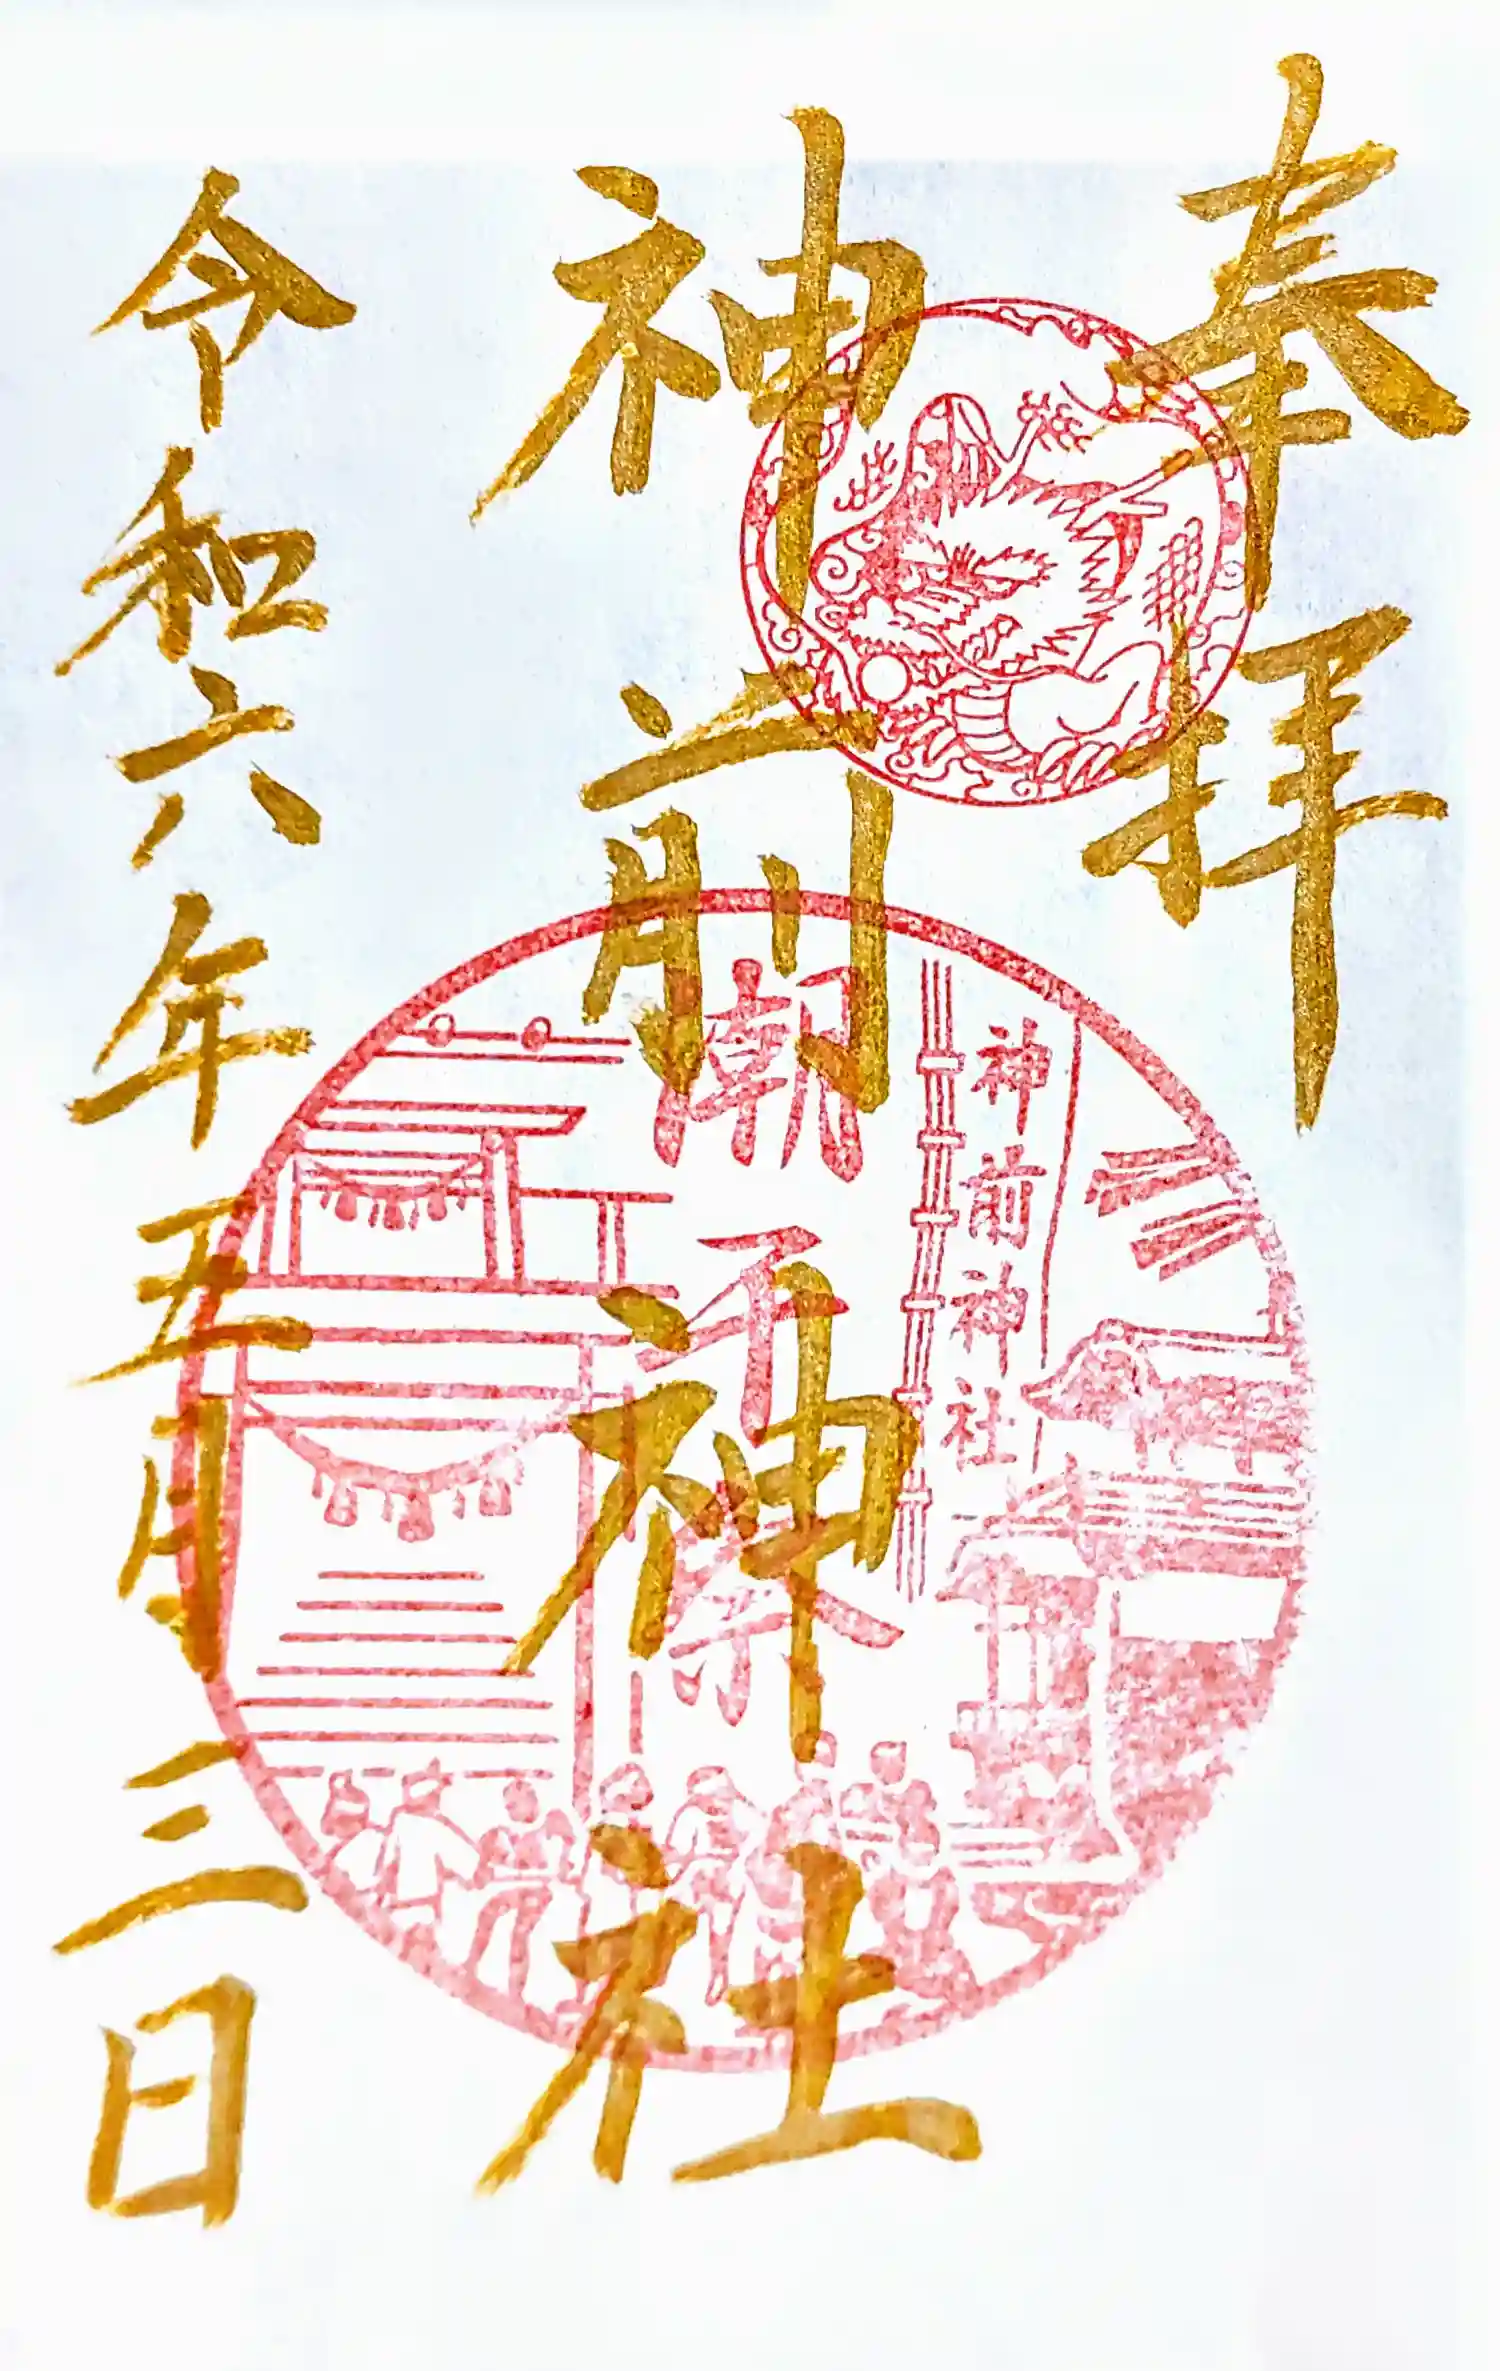 奉拝
神前神社
令和六年五月三日
神前神社
潮干祭